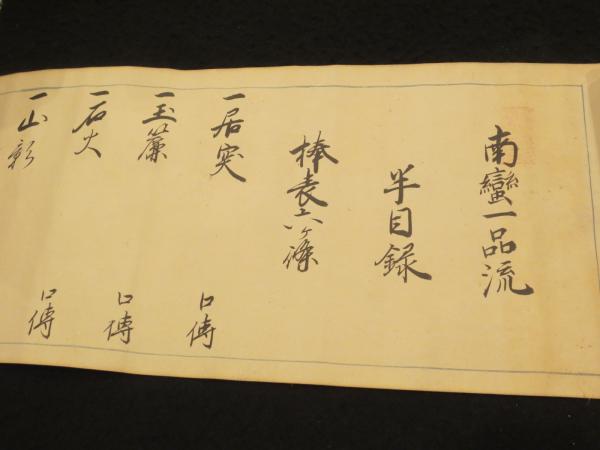 南蠻一品流
半目録
棒表六ヶ條
一居突
口傳
一玉簾
口傳
一石火
口傳
一山彰